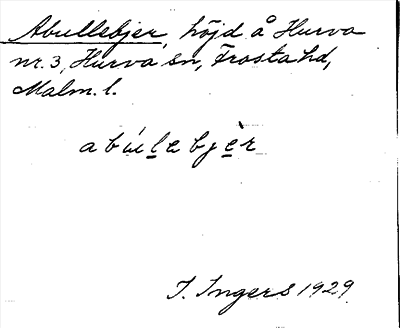 Abullebjer, höjd å Hurva
nr. 3, Hurva sn, Frosta hd,
Malm. l.
abulebjèr
I. Ingers 1929